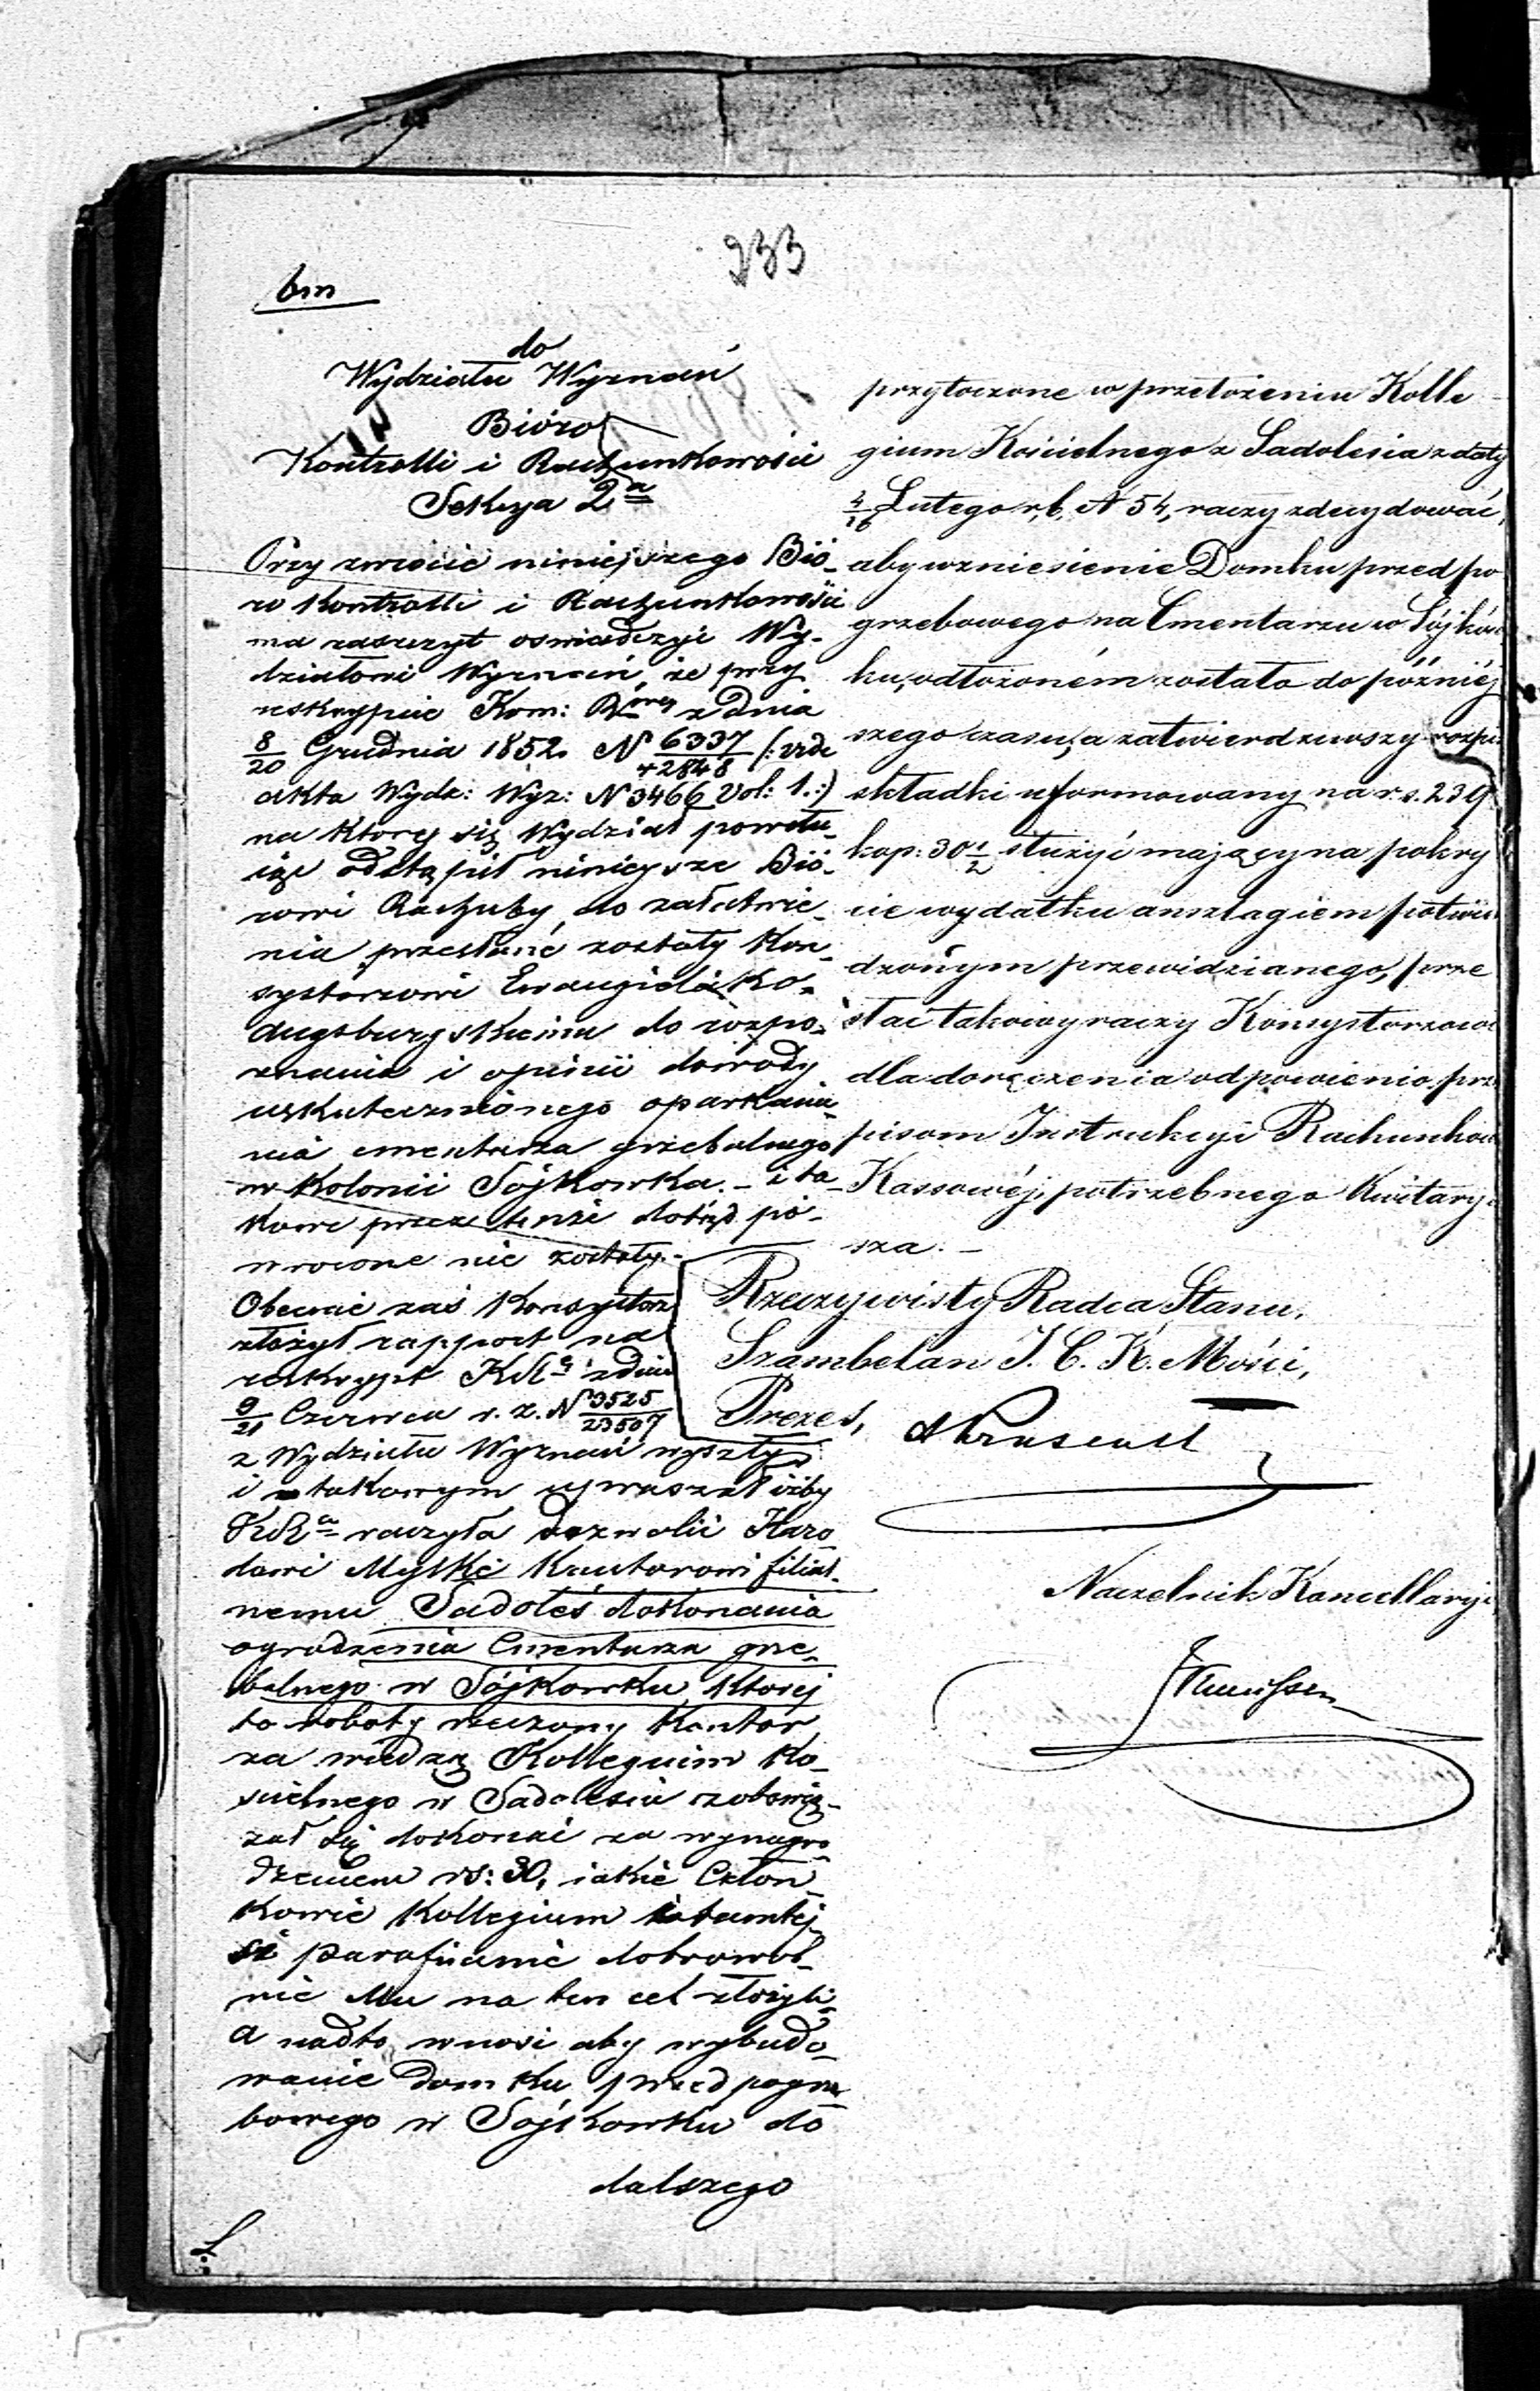 233
bm
do
Wydziału Wyznań
Bióro
Kontrolli i Rachunkowości
Sekcya 2a
Przy zwrócie niniejszego Bió-
ro Kontrolli i Rachunkowości
ma zaszczyt oświadczyć Wy-
działowi Wyznań, że przy
reskrypcie Kom: z dnia
8/20 Grudnia 1852 N 6337/42848 (: vide
akta Wydz: Wyz: N 3466 Vol: 1. :)
na który się Wydział powołu-
iąc odstąpił niniejsze Bió-
rowi Rachuby, do załatwie-
nia przesłane zostały Kon-
systorzowi Ewangielicko-
Augsburgskiemu do rozpo-
znania i opinii dowody
uskutecznionego oparkanie-
nia cmentarza grzebalnego
w Kolonii Sójkowka. – i ta-
kowe przez tenże dotąd po-
wrocone nie zostały. –
Obecnie zaś Konsystorz
złożył rapport na
reskrypt z dnia
9/21 Czerwca r. z. N 3525/23507
z Wydziału Wyznań wyszły
i takowym upraszał iżby
raczyła dozwolić
Kantorowi filial-
nemu Sadoleś dokonania
ogrodzenia Cmentarza grze-
balnego w Sójkowku, której
to roboty rzeczony Kantor
za wiedzą Kollegium Ko-
ścielnego w Sadolesiu zobowią-
zał się dokonać za wynagro-
dzeniem rs: 30, iakie Człon-
kowie Kollegium i tamtej-
si parafianie dobrowol-
nie Mu na ten cel złożyli
a nadto wnosi aby wybudo-
wanie domku przedpogrze-
bowego w Sójkowku do
dalszego
przytoczone w przełożeniu Kolle-
gium Kościelnego z Sadolesia z daty
4/16 Lutego r. b. N 54, raczy zdecydować,
aby wzniesienie Domku przedpo
grzebowego na Cmentarzu w Sójków
ku, odłożoném zostało do późniéj
szego czasu, a zatwierdziwszy rozpis
składki uformowany na r. s. 239
kop: 30 1/2 służyć mający na pokry
cie wydatku anszlagiem potwier
dzonym przewidzianego, prze
słać takowy raczy Konsystorzowi
dla doręczenia odpowienio prze
pisom Instrukcyi Rachunkowo
Kassowéj, potrzebnego Kwitary
sza. –
Rzeczywisty Radca Stanu,
Szambelan J. C. K. Mości,
Prezes,
Naczelnik Kancellaryi